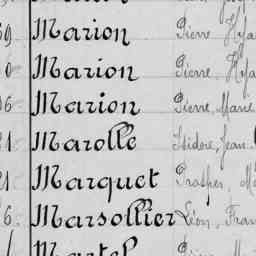 59 Marion Pierre, Hya
0 Marion Pierre, Hya
06 Marion Pierre, Marie
21 Marolle Isidore, Jean
21 Marquet Prosper,
6 Marsollier Léon, Fran
Martel Pierre